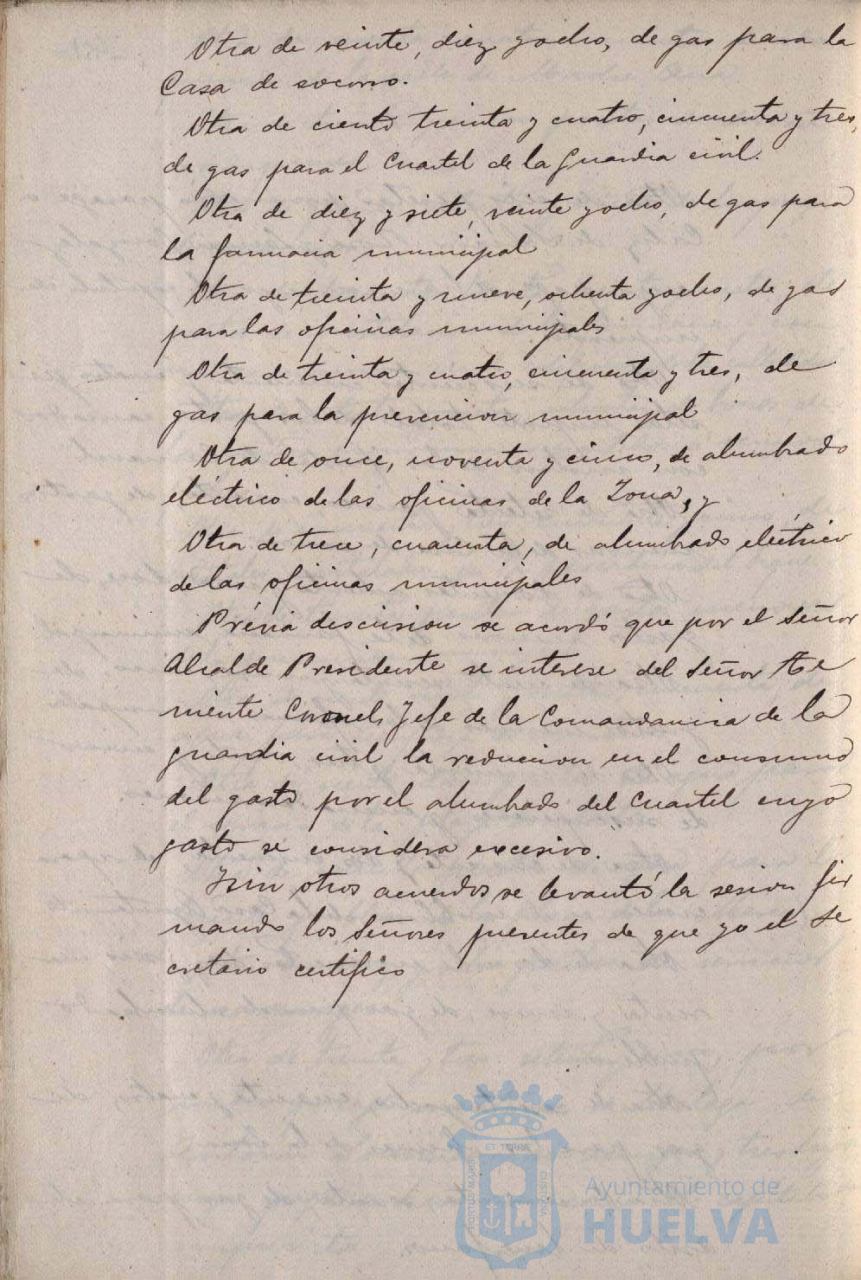 Otra de veinte, diez y ocho, de gas para la
Casa de socorro.
Otra de ciento treinta y cuatro, cincuenta y tres,
de gas para el Cuartel de la Guardia civil.
Otra de diez y siete, veinte y ocho, de gas para
la farmacia municipal
Otra de treinta y nueve, ochenta y ocho, de gas
para las oficinas municipales
Otra de treinta y cuatro, cincuenta y tres, de
gas para la prevencion municipal
Otra de once, noventa y cinco, de alumbrado
eléctrico de las oficinas de la Zona, y
Otra de trece, cuarenta, de alumbrado eléctrico
de las oficinas municipales
Prévia discusion se acordó que por el Señor
Alcalde Presidente se interese del Señor Te
niente Coronel Jefe de la Comandancia de la
guardia civil la reduccion en el consumo
del gasto por el alumbrado del Cuartel cuyo
gasto se considera excesivo.
Y sin otros acuerdos se levantó la sesion fir
mando los Señores presentes de que yo el Se
cretario certifico
PORTUS MARIS
ET TERRE
CUSTODIA
Ayuntamiento de
HUELVA